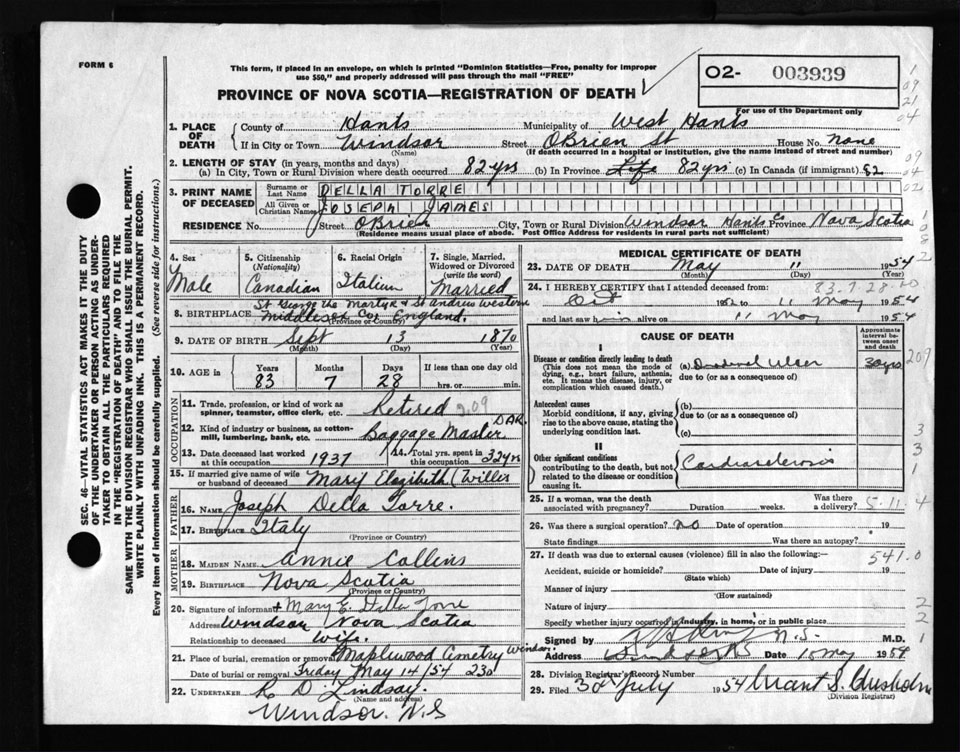 FORM 6
This form, if placed in an envelope, on which is printed "Dominion Statistics—Free, penalty for improper
use $50," and properly addressed will pass through the mail "FREE"
PROVINCE OF NOVA SCOTIA—REGISTRATION OF DEATH
O2- 003939
For use of the Department only
1
09
21
04
09
04
02
SEC. 46—VITAL STATISTICS ACT MAKES IT THE DUTY
OF THE UNDERTAKER OR PERSON ACTING AS UNDER-
TAKER TO OBTAIN ALL THE PARTICULARS REQUIRED
IN THE "REGISTRATION OF DEATH" AND TO FILE THE
SAME WITH THE DIVISION REGISTRAR WHO SHALL ISSUE THE BURIAL PERMIT.
WRITE PLAINLY WITH UNFADING INK. THIS IS A PERMANENT RECORD.
Every item of information should be carefully supplied. (See reverse side for instructions.)
1. PLACE OF DEATH
County of Hants Municipality of West Hants
If in City or Town Windsor Street OBrien St House No. none
(Name) (If death occurred in a hospital or institution, give the name instead of street and number)
2. LENGTH OF STAY (in years, months and days)
(a) In City, Town or Rural Division where death occurred 82 yrs (b) In Province Life 82 yrs (c) In Canada (if immigrant) 82
3. PRINT NAME OF DECEASED
Surname or Last Name DELLA TORRE
All Given or Christian Names JOSEPH JAMES
RESIDENCE No. Street OBrien City, Town or Rural Division Windsor Hants Co Province Nova Scotia
(Residence means usual place of abode. Post Office Address for residents in rural parts not sufficient)
4. Sex Male
5. Citizenship (Nationality) Canadian
6. Racial Origin Italian
7. Single, Married, Widowed or Divorced (write the word) Married
8. BIRTHPLACE St George the Martyr & St Andrew Western
Middlesex Co. England.
(Province or Country)
9. DATE OF BIRTH Sept 13 1870
(Month) (Day) (Year)
10. AGE in Years 83 Months 7 Days 28 If less than one day old
hrs. or min.
OCCUPATION
11. Trade, profession, or kind of work as
spinner, teamster, office clerk, etc. Retired 209
12. Kind of industry or business, as cotton-
mill, lumbering, bank, etc. Baggage Master DAR.
13. Date deceased last worked
at this occupation 1937
14. Total yrs. spent in
this occupation 32 yrs
15. If married give name of wife
or husband of deceased Mary Elazibeth (Willis
FATHER
16. NAME Joseph Della Torre.
17. BIRTHPLACE Italy
(Province or Country)
MOTHER
18. MAIDEN NAME Annie Collins
19. BIRTHPLACE Nova Scotia
(Province or Country)
20. Signature of informant Mary E. Della Torre
Address Windsor Nova Scotia
Relationship to deceased Wife.
21. Place of burial, cremation or removal Maplewood Cemetry Windsor
Date of burial or removal Friday May 14/54 230
22. UNDERTAKER R D Lindsay.
(Name and address)
Windsor. N.S
MEDICAL CERTIFICATE OF DEATH
23. DATE OF DEATH May 11 1954
(Month) (Day) (Year)
24. I HEREBY CERTIFY that I attended deceased from: 83.7.28
Oct 1952 to 11 May 1954
and last saw him alive on 11 May 1954
CAUSE OF DEATH
Approximate interval between onset and death
I
Disease or condition directly leading to death
(This does not mean the mode of
dying, e.g., heart failure, asthenia,
etc. It means the disease, injury, or
complication which caused death.)
(a) Duodenal Ulcer 30 yrs
due to (or as a consequence of)
209
Antecedent causes
Morbid conditions, if any, giving
rise to the above cause, stating the
underlying condition last.
(b)
due to (or as a consequence of)
(c)
3
3
II
Other significant conditions
contributing to the death, but not
related to the disease or condition
causing it.
Cardiosclerosis
25. If a woman, was the death
associated with pregnancy? Duration weeks. Was there a delivery? 5-11-4
26. Was there a surgical operation? no Date of operation 19
State findings Was there an autopsy?
27. If death was due to external causes (violence) fill in also the following:— 541.0
Accident, suicide or homicide? Date of injury 19
(State which)
Manner of injury
(How sustained)
Nature of injury
Specify whether injury occurred in industry, in home, or in public place
2
2
1
Signed by N.S. M.D.
Address Windsor NS Date 15 May 1954
28. Division Registrar's Record Number
29. Filed 30 July 1954 Grant S. Chisholm
(Division Registrar)